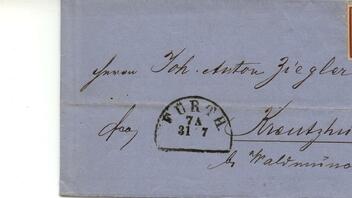 Herrn Joh. Anton Ziegler
FÜRTH
7A
31 7
fro
Kreutzhu
by Waldmün